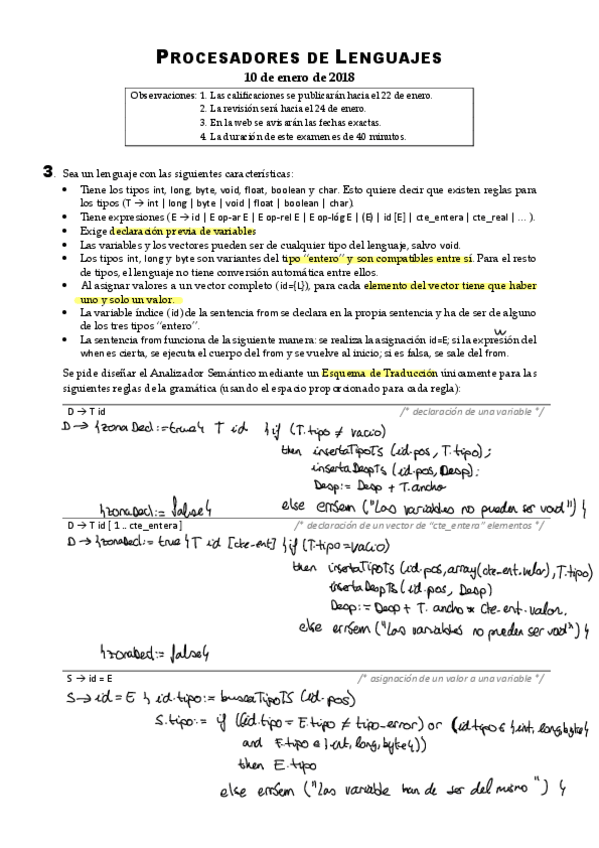 PROCESADORES DE LENGUAJES
10 de enero de 2018
Observaciones: 1. Las calificaciones se publicarán hacia el 22 de enero.
2. La revisión será hacia el 24 de enero.
3. En la web se avisarán las fechas exactas.
4. La duración de este examen es de 40 minutos.
3. Sea un lenguaje con las siguientes características:
• Tiene los tipos int, long, byte, void, float, boolean y char. Esto quiere decir que existen reglas para
los tipos (T → int | long | byte | void | float | boolean | char).
• Tiene expresiones (E → id | E op-ar E | E op-rel E | E op-lóg E | (E) | id [E] | cte_entera | cte_real | … ).
• Exige declaración previa de variables
• Las variables y los vectores pueden ser de cualquier tipo del lenguaje, salvo void.
• Los tipos int, long y byte son variantes del tipo "entero" y son compatibles entre sí. Para el resto
de tipos, el lenguaje no tiene conversión automática entre ellos.
• Al asignar valores a un vector completo (id={L}), para cada elemento del vector tiene que haber
uno y solo un valor.
• La variable índice (id) de la sentencia from se declara en la propia sentencia y ha de ser de alguno
de los tres tipos "entero".
• La sentencia from funciona de la siguiente manera: se realiza la asignación id=E; si la expresión del
when es cierta, se ejecuta el cuerpo del from y se vuelve al inicio; si es falsa, se sale del from.
Se pide diseñar el Analizador Semántico mediante un Esquema de Traducción únicamente para las
siguientes reglas de la gramática (usando el espacio proporcionado para cada regla):
D → T id /* declaración de una variable */
D → {zonaDecl:=true} T id {if (T.tipo ≠ vacio)
then insertaTipoTS (id.pos, T.tipo);
insertaDespTS (id.pos, Desp);
Desp:= Desp + T.ancho
else errSem ("Las variables no pueden ser void") }
{zonaDecl:= false}
D → T id [ 1 .. cte_entera ] /* declaración de un vector de "cte_entera" elementos */
D → {zonaDecl:= true} T id [cte-ent] {if (T.tipo=vacio)
then insertaTipoTS (id.pos, array(cte-ent.valor), T.tipo)
insertaDespTS (id.pos, Desp)
Desp:= Desp + T. ancho * cte-ent. valor.
else errSem ("Las variables no pueden ser void") }
{zonaDecl:= false}
S → id = E /* asignación de un valor a una variable */
S → id = E { id.tipo:= buscaTipoTS (id.pos)
S.tipo:= if ((id.tipo = E.tipo ≠ tipo-error) or (id.tipo ∈ {int, long, byte}
and E.tipo ∈ {int, long, byte}))
then E.tipo
else errSem ("Las variable han de ser del mismo ") }